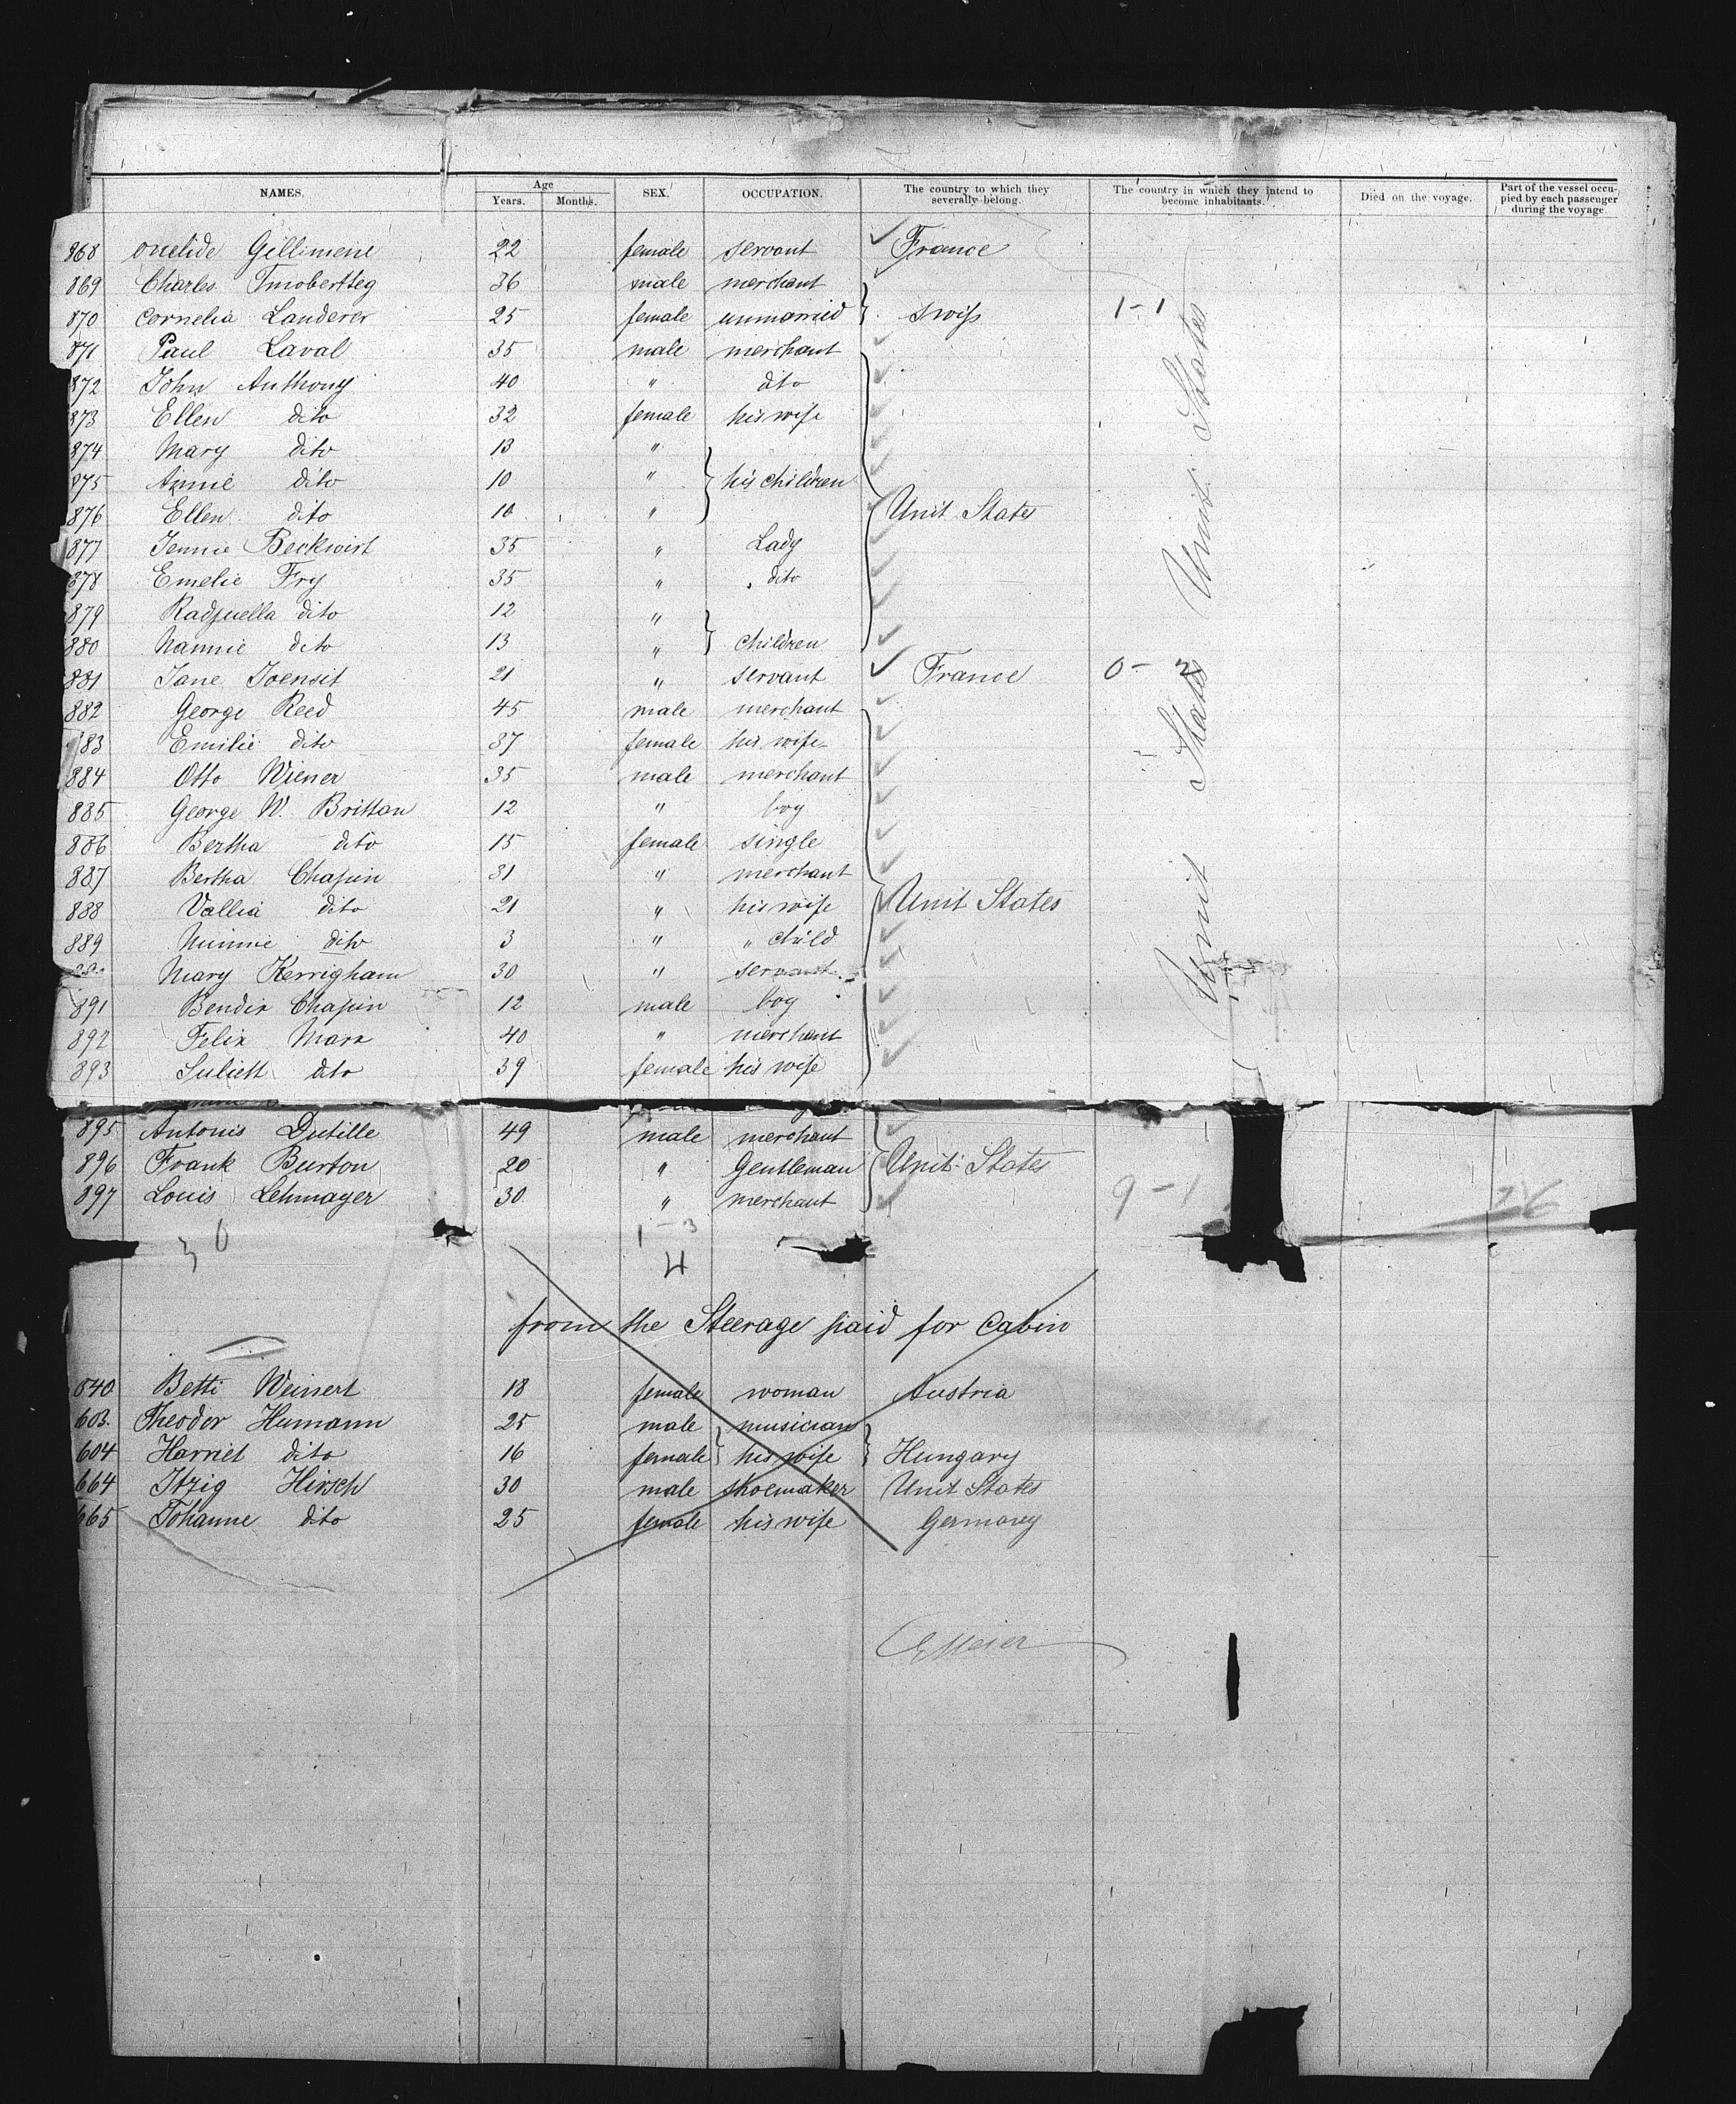 NAMES. Age Years. Months. SEX. OCCUPATION. The country to which they severally belong. The country in which they intend to become inhabitants. Died on the voyage. Part of the vessel occupied by each passenger during the voyage
868 Gillimene 22 female servant France
869 Charles 36 male merchant
870 Cornelia Landerer 25 female unmarried } Swiss 1-1
871 Paul Laval 35 male merchant
872 John Anthony 40 " dito
873 Ellen dito 32 female his wife
874 Mary dito 13 "
875 Annie dito 10 " } his children
876 Ellen dito 10 " Unit States
877 Jennie Beckwirt 35 " Lady
878 Emelie Fry 35 " dito
879 Radjuella dito 12 "
880 Nannie dito 13 " } children
881 Jane Joensit 21 " servant France 0-2
882 George Reed 45 male merchant
883 Emilie dito 37 female his wife
884 Otto Wiener 35 male merchant
885 George W. Brittan 12 " boy
886 Bertha dito 15 female single
887 Bertha Chapin 31 " merchant
888 Vallia dito 21 " his wife Unit States
889 Minnie dito 3 " " child
Mary Kerrigham 30 " servant
891 Bendix Chapin 12 male boy
892 Felix Marx 40 " merchant
893 Juliett dito 39 female his wife
Unit States
Unit States
895 Antonis Dutille 49 male merchant
896 Frank Burton 20 " Gentleman Unit States
897 Louis Lehmayer 30 " merchant 9-1 26
1-3
4
from the Steerage paid for Cabin
840 Betti Weinert 18 female woman Austria
603. Theodor Humann 25 male musician
604 Harriet dito 16 female } his wife } Hungary
664 Itzig Hirsch 30 male shoemaker Unit States
665 Johanne dito 25 female his wife Germany
Meier